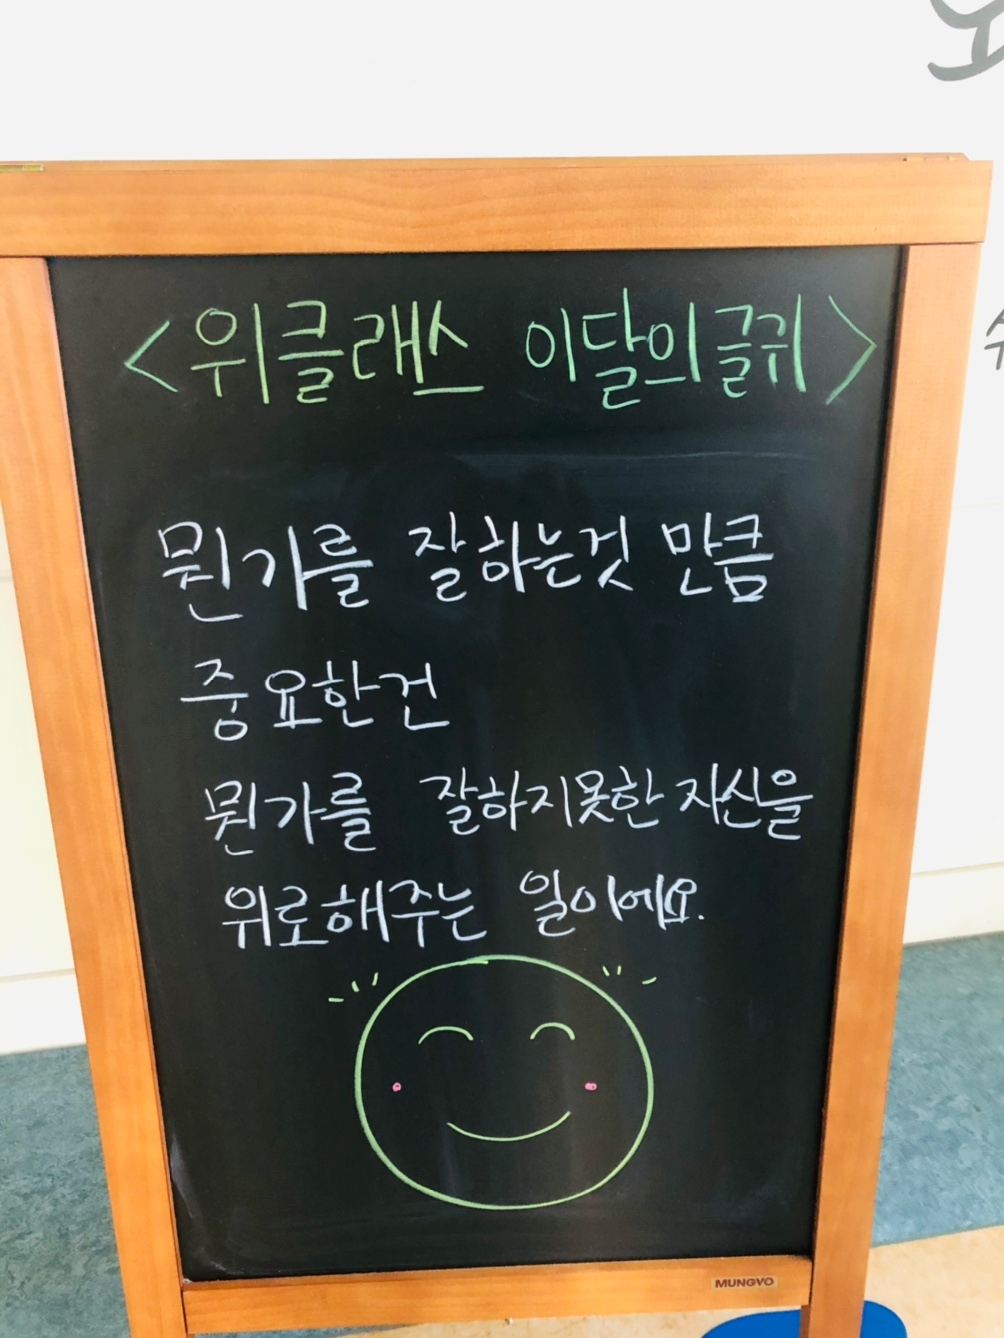 <위클래스 이달의 글귀>
뭔가를 잘하는것 만큼
중요한건
뭔가를 잘하지못한 자신을
위로해주는 일이에요.
MUNGYO